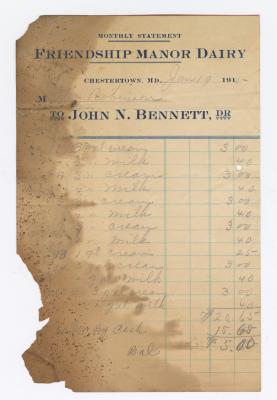 MONTHLY STATEMENT
FRIENDSHIP MANOR DAIRY
CHESTERTOWN, MD. Jan 19 191
M Robinson
TO JOHN N. BENNETT, DR
3 cream 3 00
Milk 40
3 Cream 3 00
Milk 40
cream 3 00
Milk 40
cream 3 00
Milk 40
1 qt cream 25
cream 3 00
milk 40
cream 3 00
milk 40
$20.65
By Cash 15.65
Bal $5.00